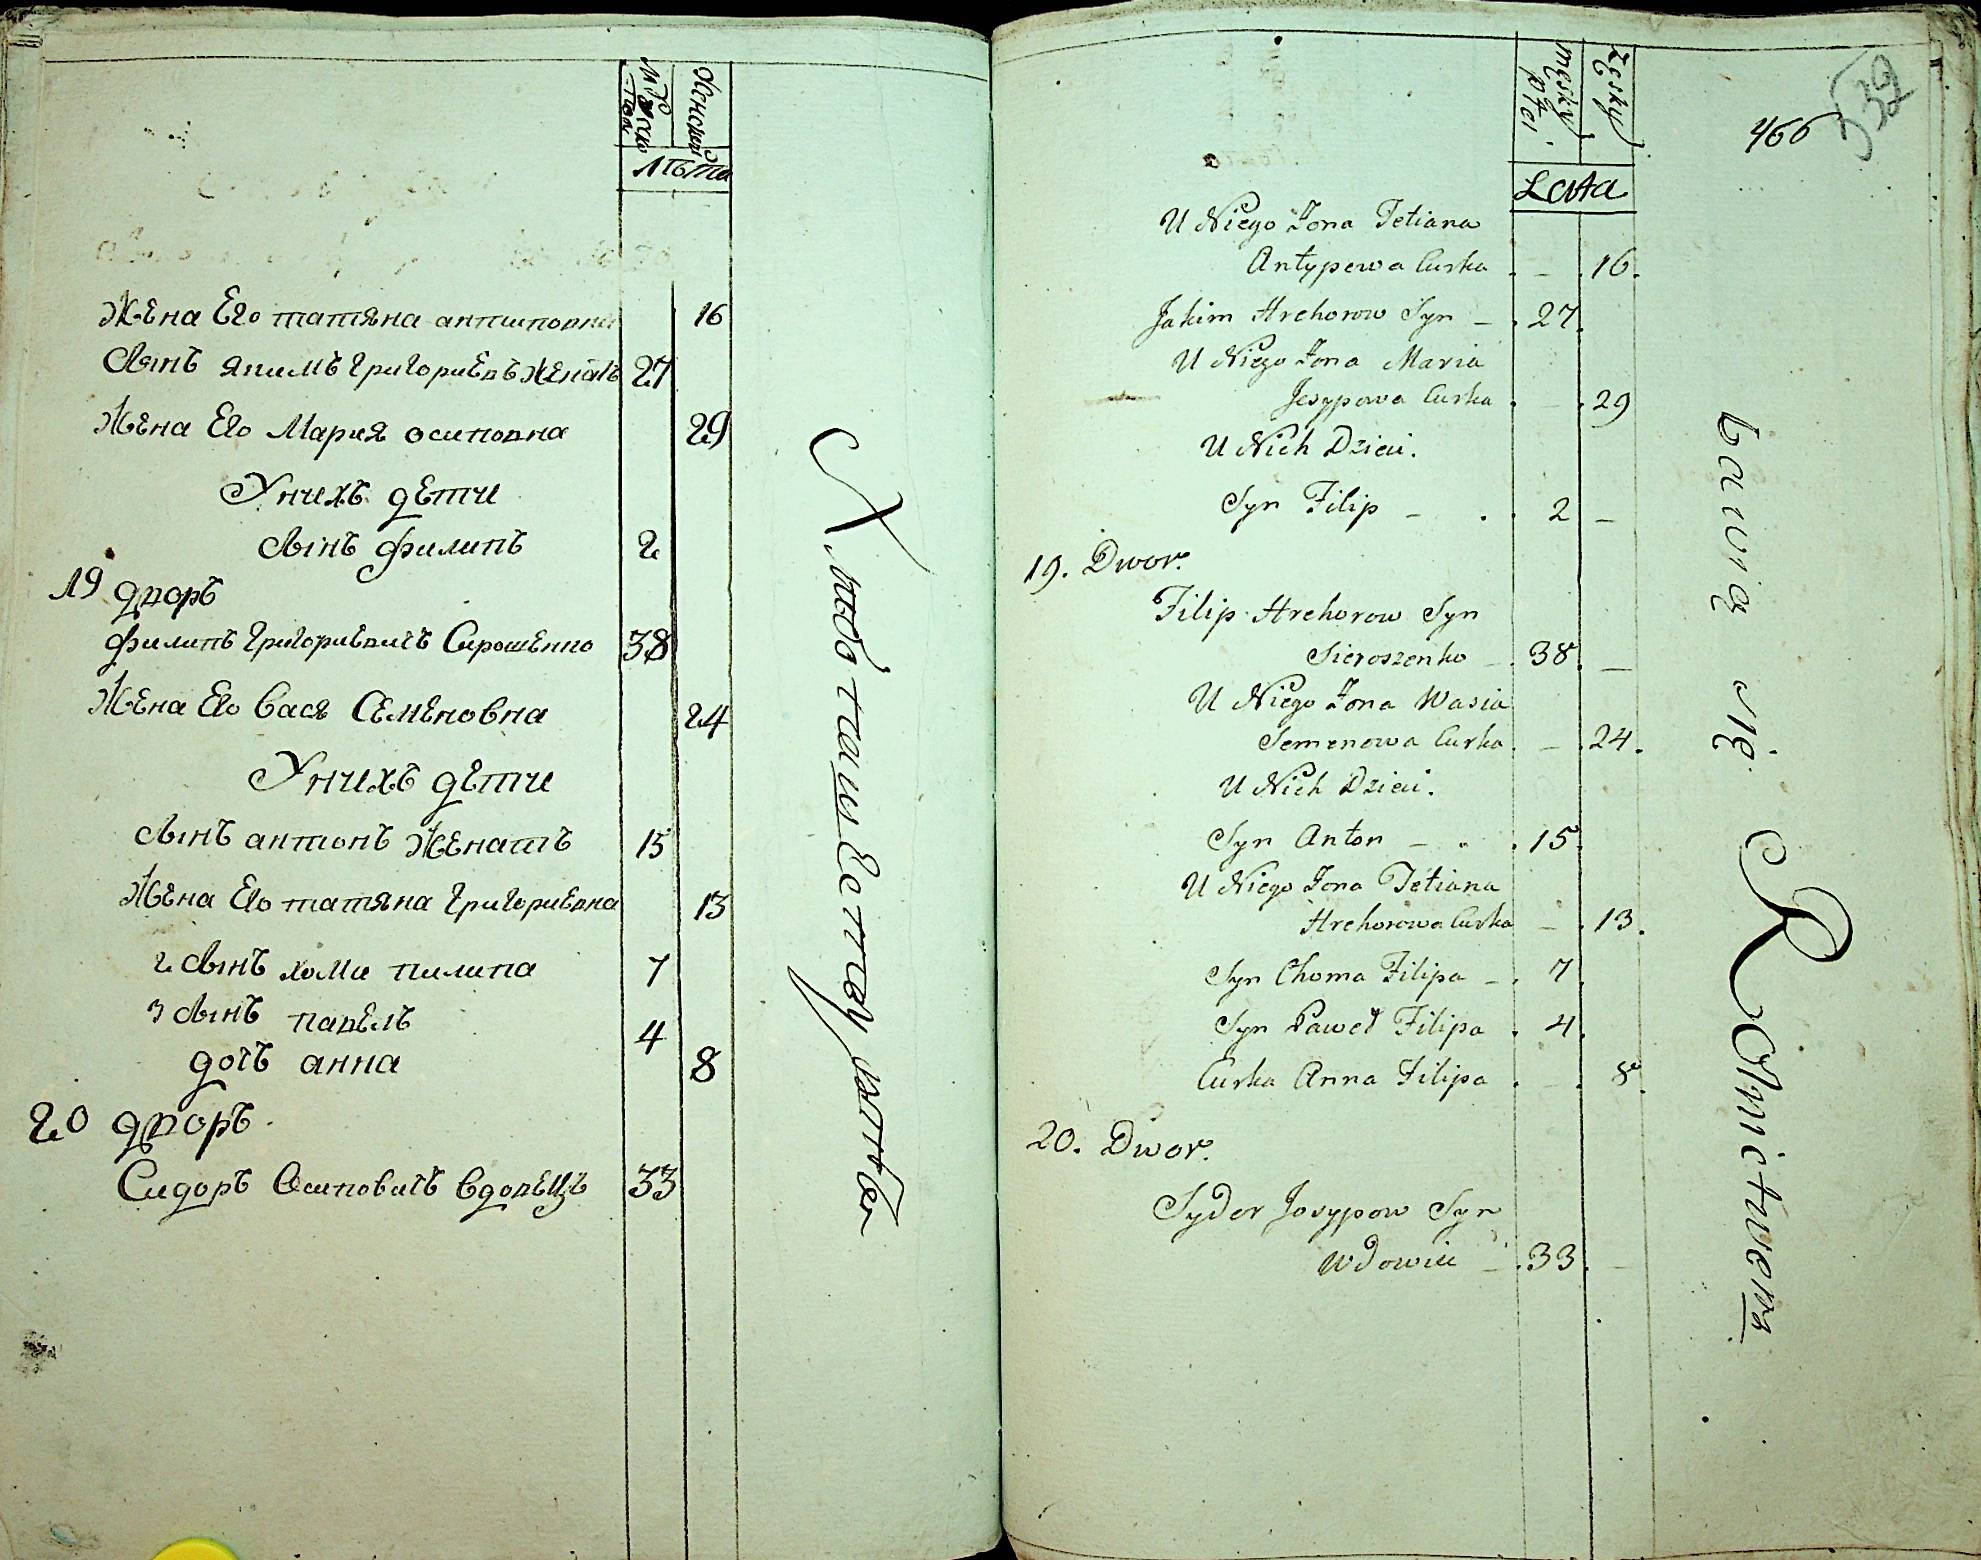 Мужеска пола
Женской
Лѣта
Жена Его татяна антиповна 16
Сынъ якимъ григориевъ женатъ 27
Жена Его Мария осиповна 29
У нихъ дети
Сынъ филипъ 2
19 дворъ
филипъ григориевичъ Сирошенко 38
Жена Его Вася Семеновна 24
У нихъ дети
Сынъ антонъ женатъ 15
Жена Его татяна григориевна 13
2 Сынъ хома пилипа 7
3 Сынъ павелъ 4
дочъ анна 8
20 дворъ
Сидоръ Осиповичъ вдовецъ 33
męsky płci
Zęsky
Lata
466
539
U Niego Żona Tetiana
Antypowa Curka - 16.
Jakim Hrehorow Syn - 27
U Niego Żona Maria
Jesypowa Curka 29
U Nich Dzieci.
Syn Filip - 2 -
19. Dwor.
Filip Hrehorow Syn
Sieroszenko 38 -
U Niego Żona Wasia
Semenowa Curka - 24.
U Nich Dzieci.
Syn Anton - 15
U Niego Żona Tetiana
Hrehorowa Curka - 13.
Syn Choma Filipa - 7
Syn Paweł Filipa 4
Curka Anna Filipa - 8
20. Dwor.
Syder Josypow Syn
Wdowiec - 33 -
bawią się